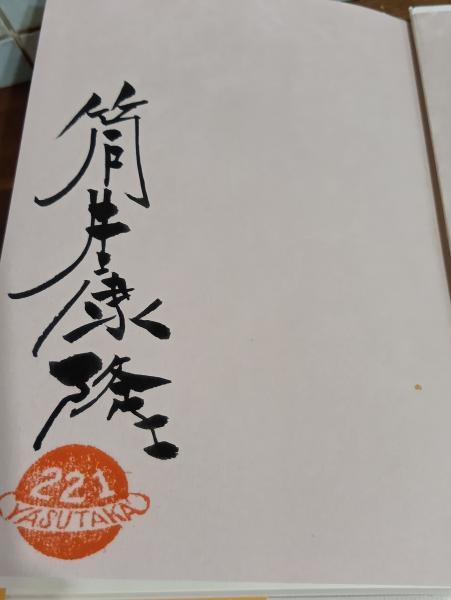 筒井康隆
221
YASUTAKA